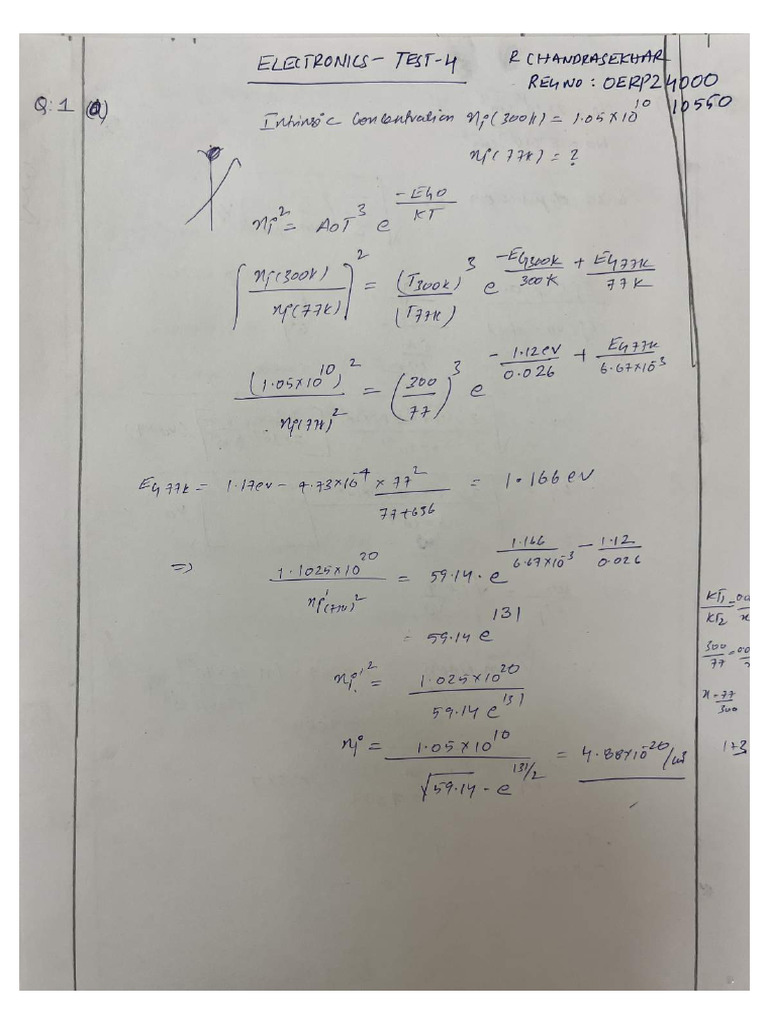 ELECTRONICS - TEST-4
R CHANDRASEKHAR
REG NO : OERP24000
10550
Q:1 (a)
Intrinsic Concentration ni(300k) = 1.05×10^10
ni(77k) = ?
ni^2 = A0T^3 e^(-EG0/KT)
[ni(300k)/ni(77k)]^2 = (T300k)^3/(T77k) e^(-EG300k/300K + EG77k/77K)
(1.05×10^10)^2/ni(77k)^2 = (300/77)^3 e^(-1.12ev/0.026 + EG77k/6.67×10^-3)
EG77k = 1.17ev - 4.73×10^-4 × 77^2/77+636 = 1.166ev
⇒ 1.1025×10^20/ni(77k)^2 = 59.14 · e^(1.166/6.67×10^-3 - 1.12/0.026)
= 59.14 e^131
ni^2 = 1.025×10^20/59.14 e^131
ni = 1.05×10^10/√59.14 · e^131/2 = 4.88×10^-20/cm^3
KT1/KT2 =
300/77 =
x = 77/300
1+3